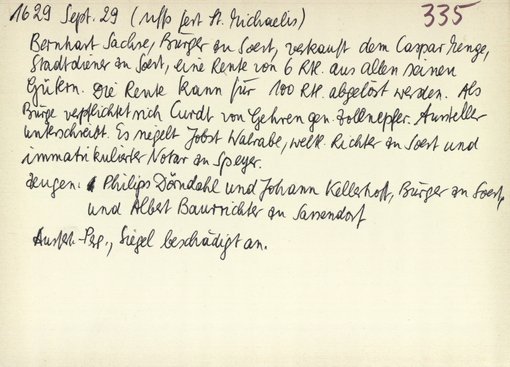 1629 Sept. 29 (uffs fest St. Michaelis) 335
Bernhart Sachse, Bürger zu Soest, verkauft dem Caspar Menge,
Stadtdiener zu Soest, eine Rente von 6 Rtl. aus allen seinen
Gütern. Die Rente kann für 100 Rtl. abgelöst werden. Als
Bürge verpflichtet sich Curdt von Gehren gen. Zollnepfer. Aussteller
unterschreibt. Es siegelt Jobst Walrabe, weltl. Richter zu Soest und
immatrikulierter Notar zu Speyer.
Zeugen: Philips Dörndahl und Johann Kellerhoff, Bürger zu Soest,
und Albert Baurrichter zu Sassendorf
Ausfert.-Perg., Siegel beschädigt an.